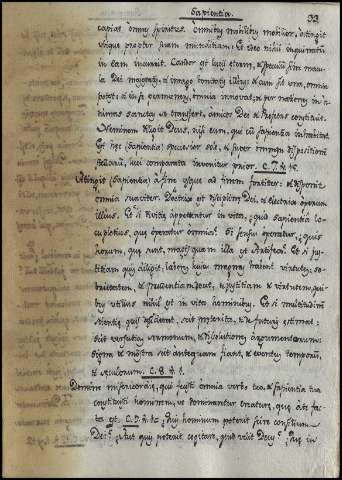 Sapientia. 33
capias omnes spiritus. Omnibus mobilibus mobilior, attingit
ubique propter suam munditiam: Et ideo nihil inquinatum
in eam incurrit. Candor est lucis eternæ, & speculum sine macu-
la Dei majestatis, & imago bonitatis illius: & cum sit una, omnia
potest: & in se permanens, omnia innovat, & per nationes in a-
nimas sanctas se transfert, amicos Dei & Prophetas constituit.
Neminem diligit Deus, nisi eum, qui cū sapientia inhabitat.
Est hęc (sapientia) speciosior sole, & super omnem dispositionem
stellarū, luci comparata invenitur prior. C. 7.
Attingit (sapientia) à fine usque ad finem fortiter: & disponit
omnia suaviter. Doctrix est disciplinę Dei, & electrix operum
illius. Et si divitię appetuntur in vita, quid sapientia lo-
cupletius, quę operatur omnia? Si sensus operatur, quis
horum, quę sunt, magis quam illa est Artifex? Et si ju-
stitiam quis diligit, labores hujus magnas habent virtutes; so-
brietatem, & prudentiam docet, & justitiam & virtutem, qui-
bus utilius nihil est in vita hominibus. Et si multitudinem
scientię quis desiderat, scit preterita, & de futuris estimat:
scit versutias sermonum, & dissolutiones argumentorum:
signa & monstra scit antequam fiant, & eventus temporum,
& seculorum. C. 8.
Domine misericordię, qui fecisti omnia verbo tuo, & sapientia tua
constituisti hominem, ut dominaretur creaturę, quę à te fac-
ta est. C. 9. Quis hominum poterit scire consilium
Dei? aut quis poterit cogitare, quid velit Deus? Quę in